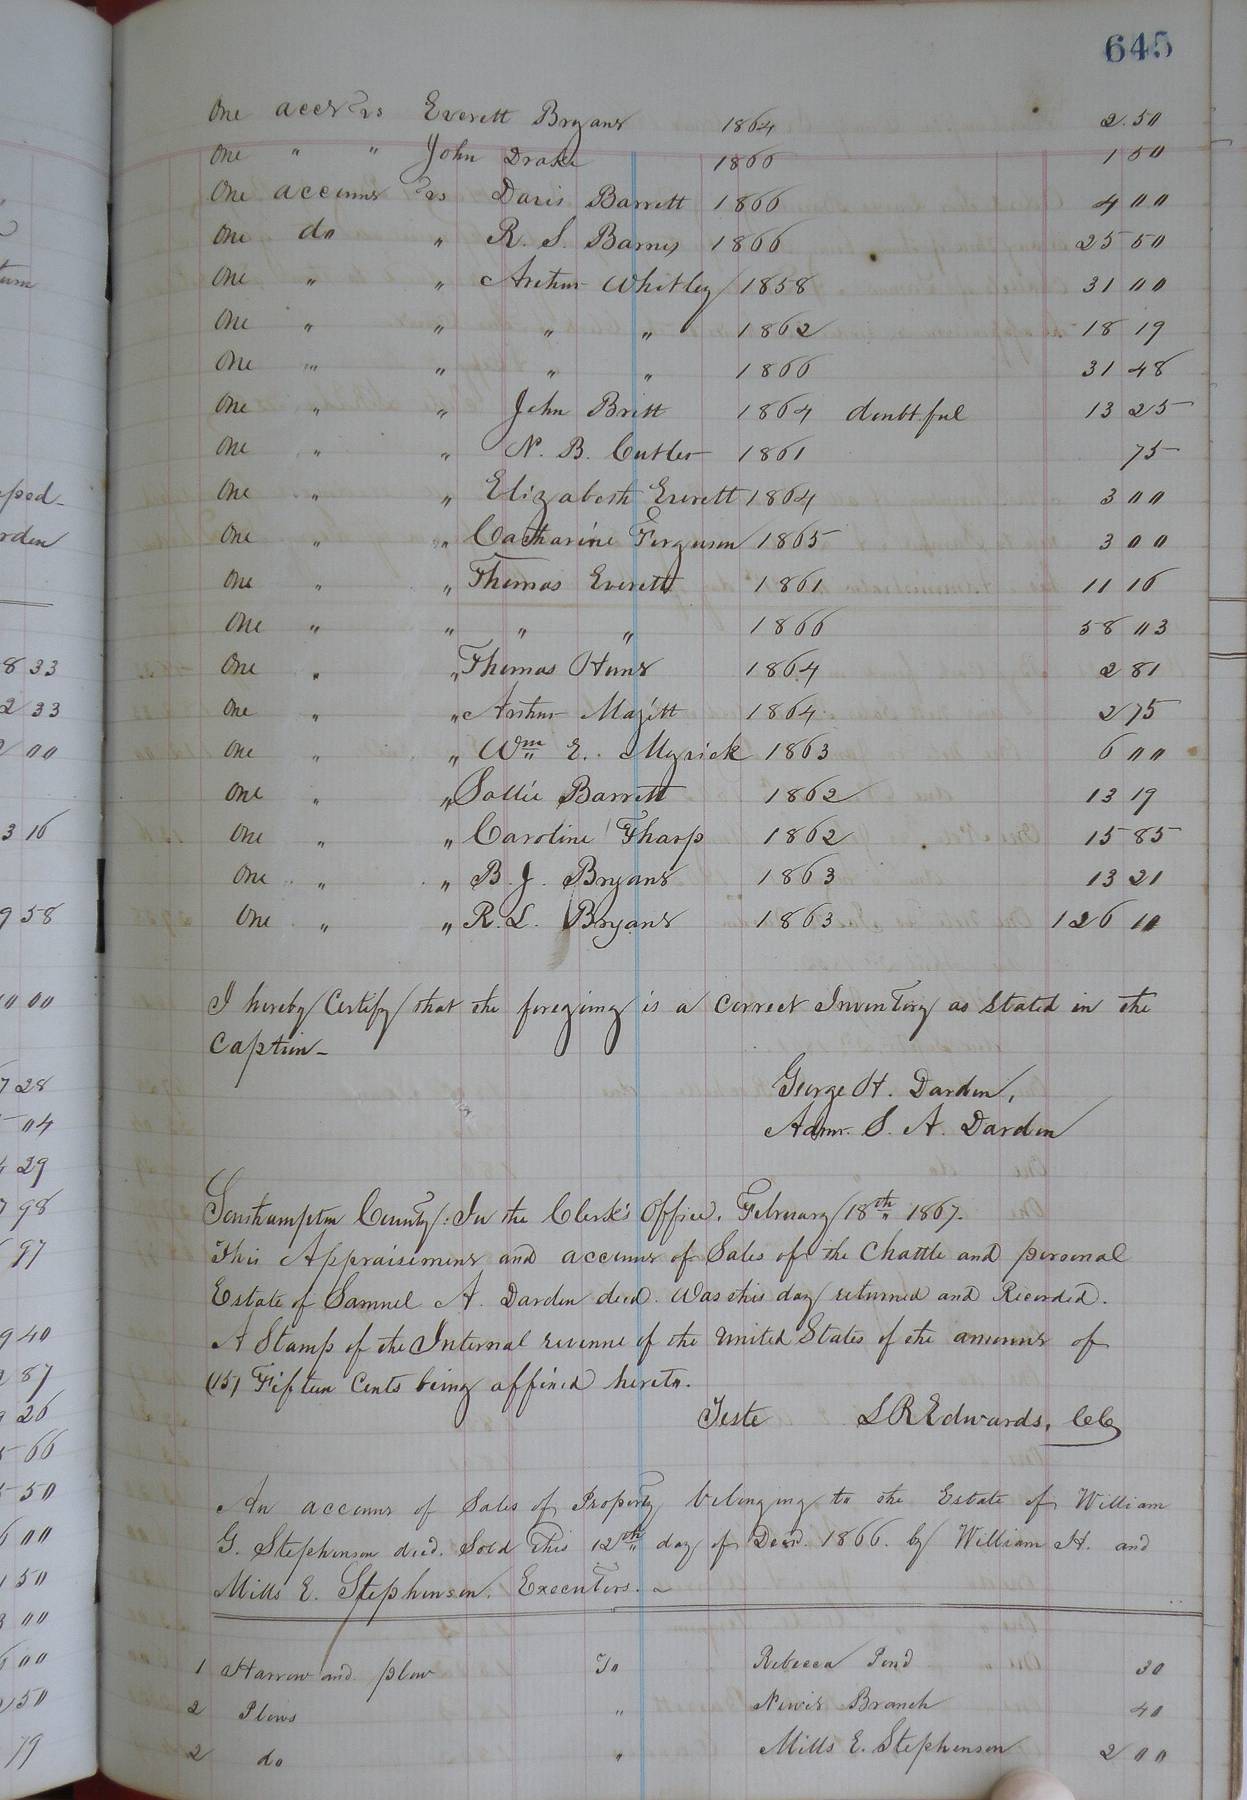 645
One acct vs Everett Bryant 1864 2.50
One " " John Drake 1866 1 50
One account vs Davis Barrett 1866 4 00
One do " R. S. Barnes 1866 25 50
One " " Arthur Whitley 1858 31 00
One " " " " 1862 18 19
One " " " " 1866 31 48
One " " John Britt 1864 doubtful 13 25
One " " N. B. Cutler 1861 75
One " " Elizabeth Everett 1864 3 00
One " " Catharine Ferguson 1865 3 00
One " " Thomas Everett 1861 11 16
One " " " " 1866 58 03
One " " Thomas Hunt 1864 2 81
One " " Arthur Majett 1864 2 75
One " " Wm E. Myrick 1863 6 00
One " " Sallie Barrett 1862 13 19
One " " Caroline Tharp 1862 15 85
One " " B. J. Bryant 1863 13 21
One " " R. L. Bryant 1863 126 10
I hereby Certify that the foregoing is a Correct Inventory as Stated in the
Caption-
George H. Darden,
Admr. S. A. Darden
Southampton County: In the Clerk's Office, February 18th 1867.
This Appraisement and account of Sales of the Chattle and personal
Estate of Samuel A. Darden decd. Was this day returned and Recorded.
A Stamp of the Internal revenue of the United States of the amount of
(15) Fifteen Cents being affixed hereto.
Teste L R Edwards, CC
An account of Sales of Property belonging to the Estate of William
G. Stephenson decd. Sold This 12th day of Decr. 1866. by William H. and
Mills E. Stephenson. Executors.
1 Harrow and plow To Rebecca Pond 30
2 Plows " Newit Branch 40
2 do " Mills E. Stephenson 2 00